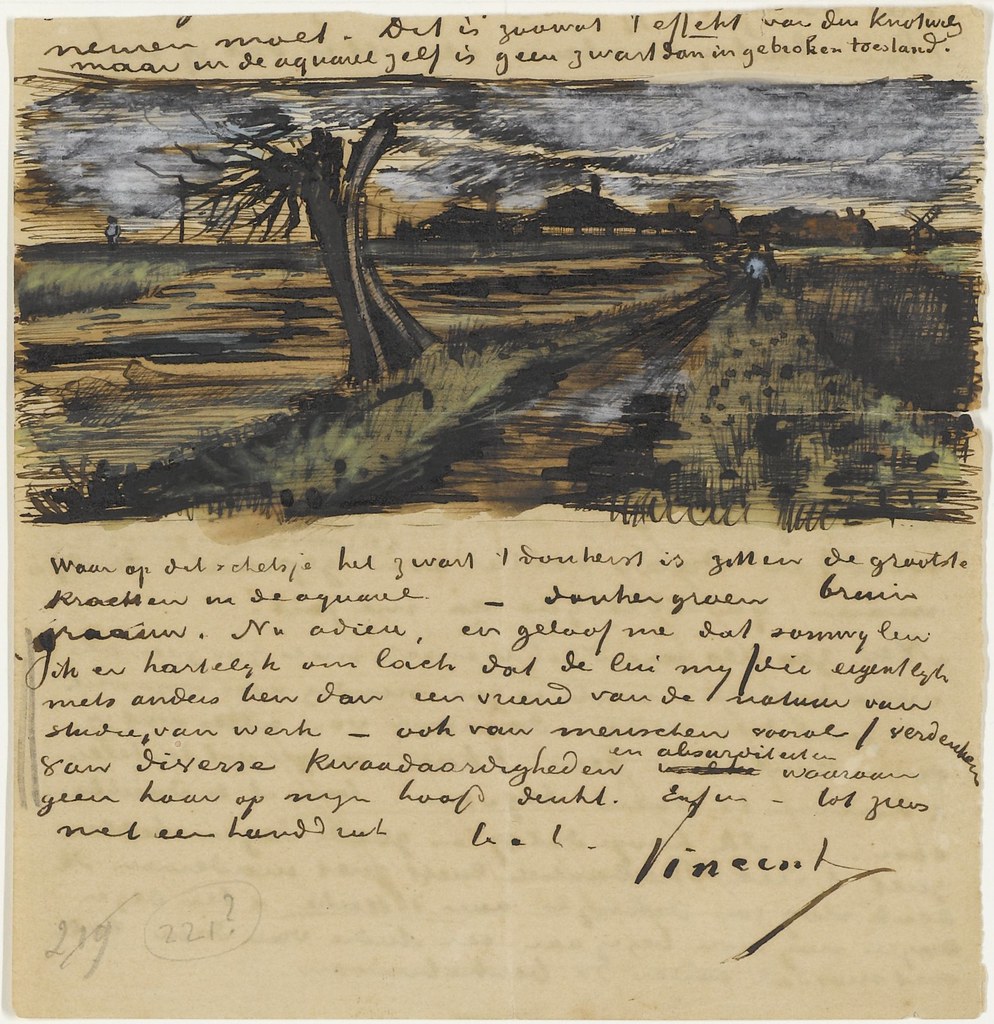 nemen moet. Dit is zoowat 't effekt van den Knotwilg
maar in de aquarel zelf is geen zwart dan in gebroken toestand.
Waar op dit schetsje het zwart 't donkerst is zitten de grootste
krachten in de aquarel – donkergroen bruin
graauw. Nu adieu, en geloof me dat somwylen
ik er hartelyk om lach dat de lui my (die eigentlyk
niets anders ben dan een vriend van de natuur van
studie, van werk – ook van menschen vooral) verdenken
en absurditeiten
van diverse kwaadaardigheden waaraan
geen haar op myn hoofd denkt. Enfin – tot ziens
met een handdruk t. à t.
Vincent
219
221?